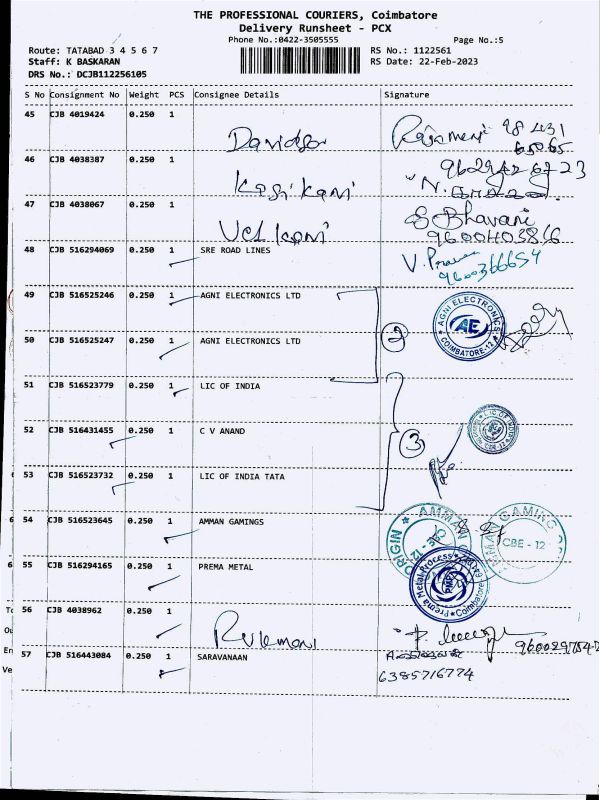 THE PROFESSIONAL COURIERS, Coimbatore
Delivery Runsheet - PCX
Phone No.:0422-3505555
Page No.:5
Route: TATABAD 3 4 5 6 7
RS No.: 1122561
Staff: K BASKARAN
RS Date: 22-Feb-2023
DRS No.: DCJB112256105
S No Consignment No Weight PCS Consignee Details Signature
45 CJB 4019424 0.250 1
46 CJB 4038387 0.250 1
47 CJB 4038067 0.250 1 S Bhavani
48 CJB 516294069 0.250 1 SRE ROAD LINES
9600366654
49 CJB 516525246 0.250 1 AGNI ELECTRONICS LTD
AGNI ELECTRONICS
AE
COIMBATORE-12
2
50 CJB 516525247 0.250 1 AGNI ELECTRONICS LTD
51 CJB 516523779 0.250 1 LIC OF INDIA
52 CJB 516431455 0.250 1 C V ANAND
3
53 CJB 516523732 0.250 1 LIC OF INDIA TATA
54 CJB 516523645 0.250 1 AMMAN GAMINGS
CBE - 12
55 CJB 516294165 0.250 1 PREMA METAL
Prema Metal-Process
Coimbatore
56 CJB 4038962 0.250 1
57 CJB 516443084 0.250 1 SARAVANAAN
6385716774